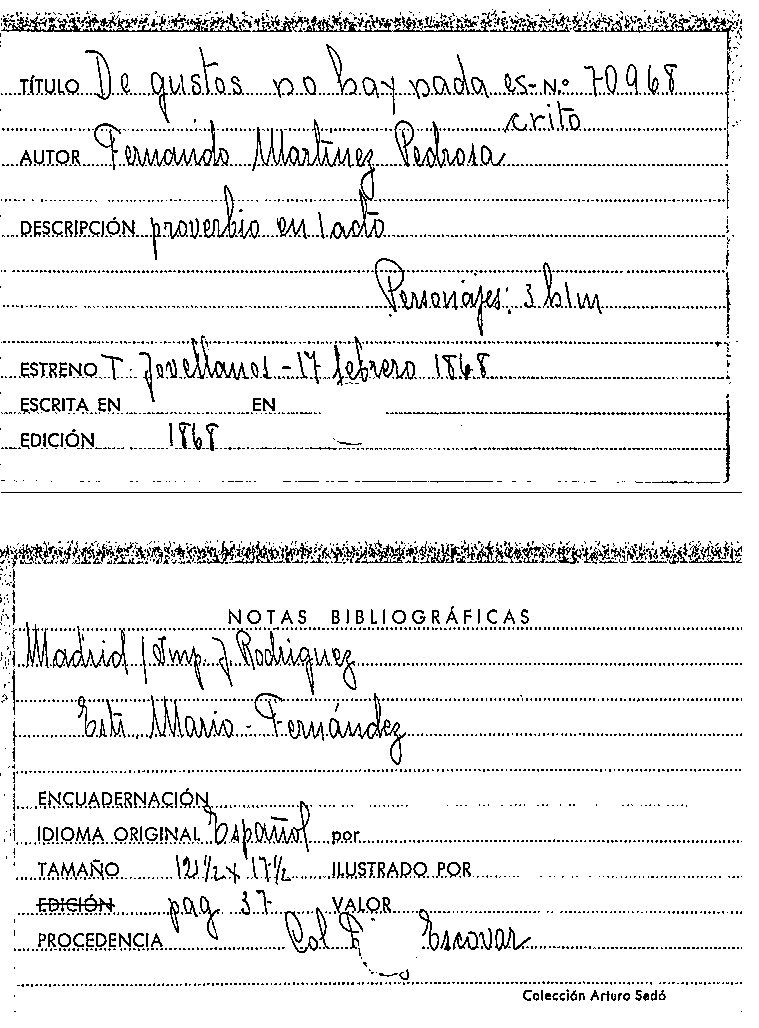 TÍTULO De gustos no hay nada es- N.º 70968
crito
AUTOR Fernando Martínez Pedrosa
DESCRIPCIÓN proverbio en 1 acto
Personajes: 3 h 1 m
ESTRENO T. Jovellanos - 17 febrero 1868
ESCRITA EN EN
EDICIÓN 1868
NOTAS BIBLIOGRÁFICAS
Madrid / Imp. J. Rodriguez
Estr. Mario - Fernández
ENCUADERNACIÓN
IDIOMA ORIGINAL Español por
TAMAÑO 12 1/2 x 17 1/2 ILUSTRADO POR
EDICIÓN pag 37 VALOR
PROCEDENCIA Col Escovar
Colección Arturo Sedó